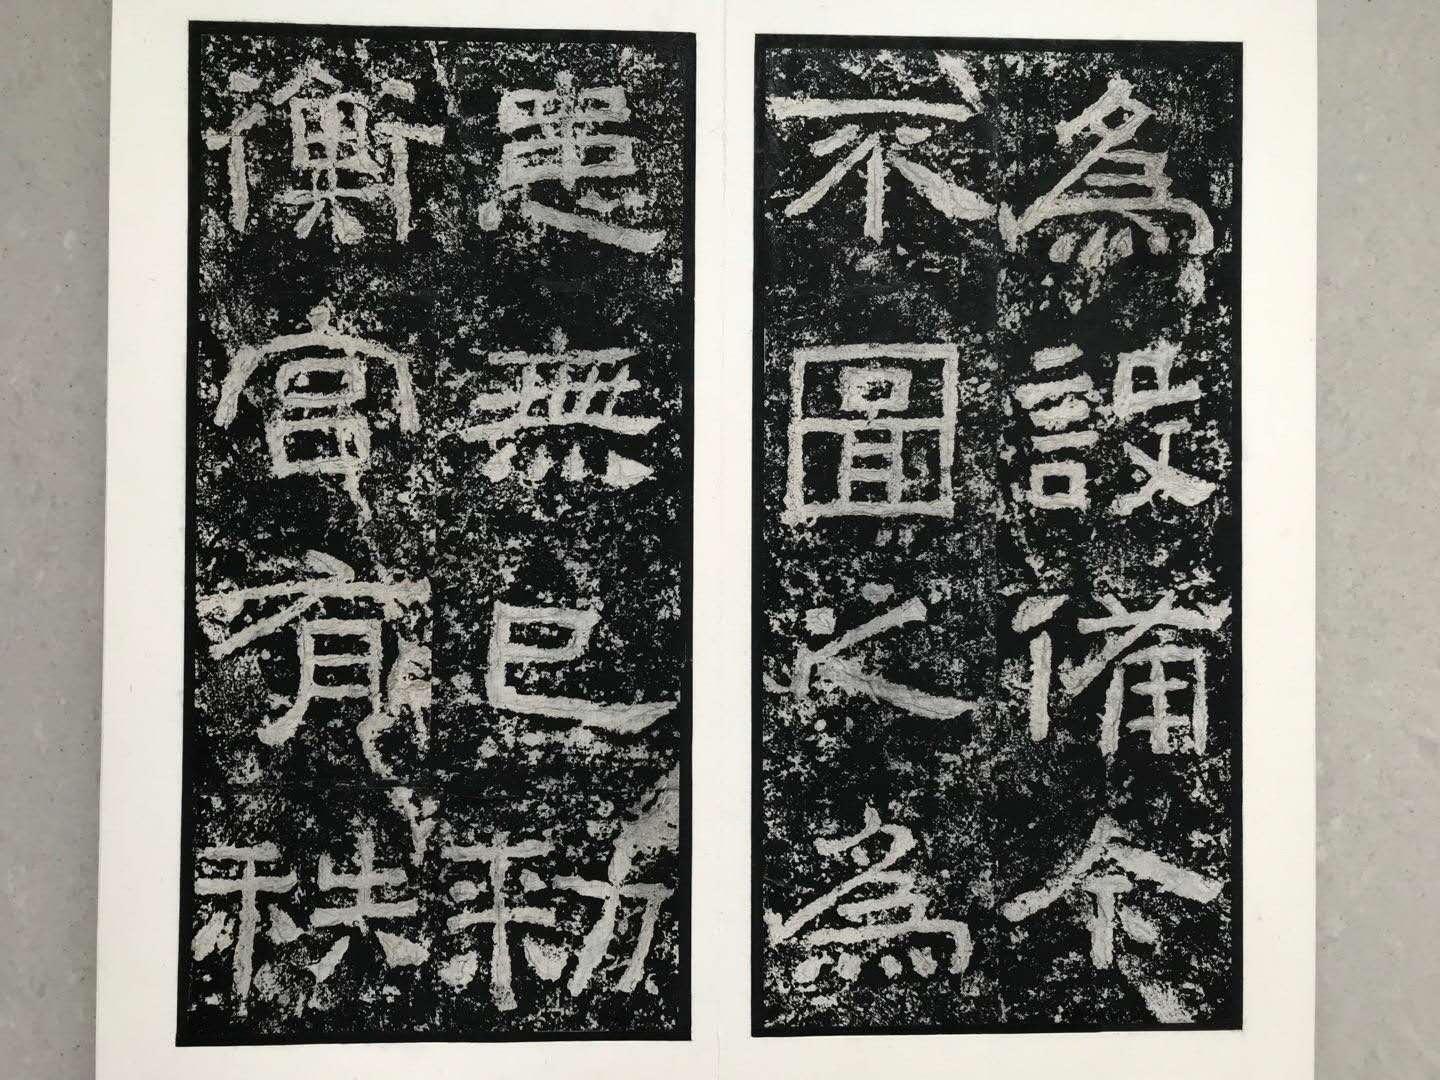 為設備今
不圖之為
患無已勑
衡官有秩